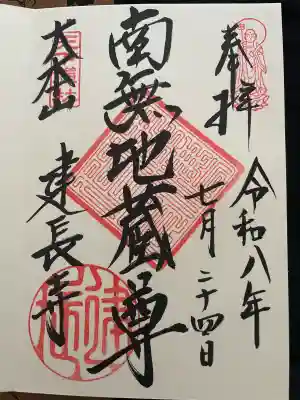 奉拝
令和八年
七月二十四日
南無地蔵尊
大本山
建長寺